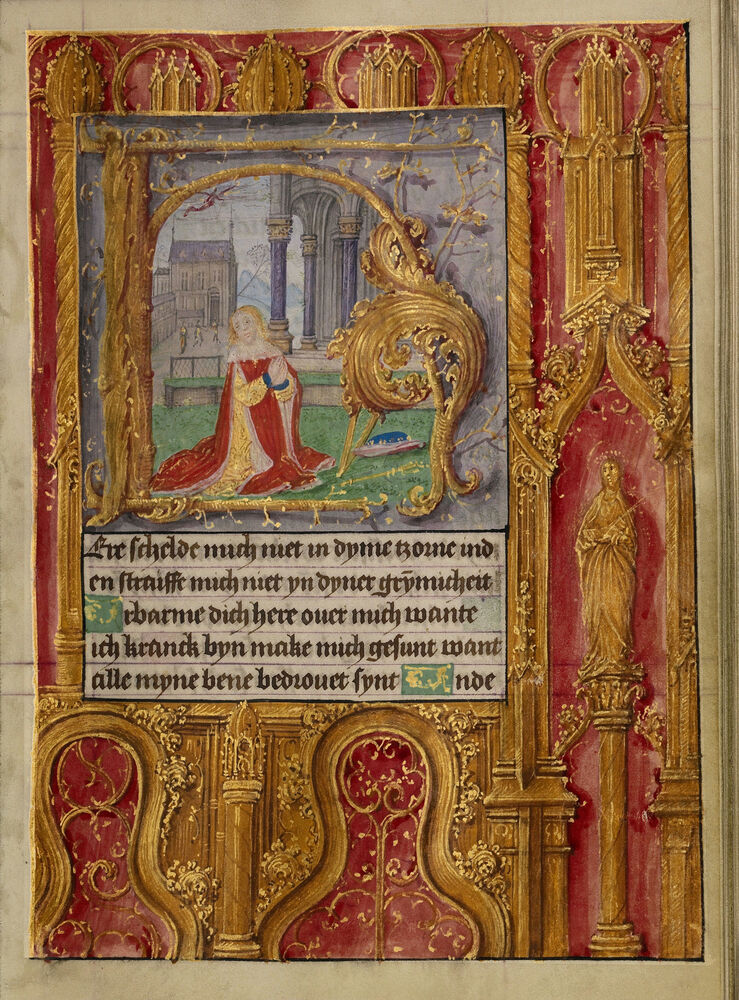 Ere schelde mich niet in dyme tzorne ind
en strauffe mich niet yn dyner grȳmicheit
Erbarme dich here ouer mich wante
ich kranck byn make mich gesunt want
alle myne bene bedrouet synt End